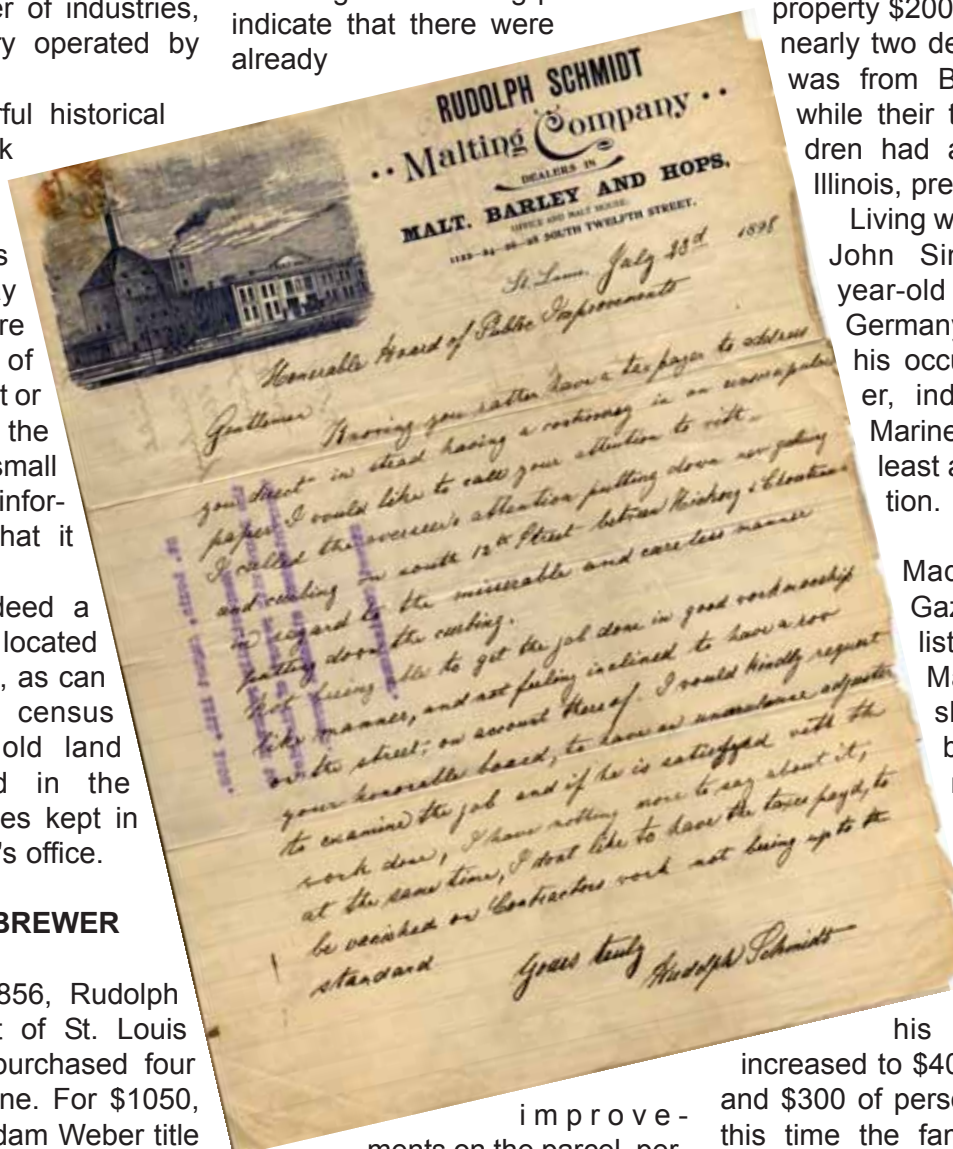 er of industries,
ry operated by
rful historical
k
s
y
re
of
t or
the
small
infor-
hat it
deed a
located
, as can
census
old land
d in the
es kept in
's office.
BREWER
856, Rudolph
t of St. Louis
purchased four
ne. For $1050,
dam Weber title
indicate that there were
already
RUDOLPH SCHMIDT
Malting Company
DEALERS IN
MALT. BARLEY AND HOPS,
OFFICE AND MALT HOUSE:
SOUTH TWELFTH STREET.
St. Louis, July 23d 1898
Honorable Board of Public Improvements
Gentlemen
Knowing you rather have a tax payer to address
you direct in stead having a in an
paper I would like to call your attention to
I called the overseer's attention putting down new
and curbing on south 12th Street between Hickory &
in regard to the miserable and careless manner
putting down the curbing.
Not being able to get the job done in good workmanship
like manner, and not feeling inclined to have a row
on the street, on account thereof. I would kindly request
your honorable board, to have an
to examine the job and if he is satisfyed with the
work done, I have nothing more to say about it,
at the same time, I dont like to have the taxes payd, to
be on Contractors work not being up to the
standard
Yours truly
Rudolph Schmidt
improve-
ments on the parcel, per-
property $200
nearly two de
was from B
while their t
dren had a
Illinois, pre
Living w
John Sir
year-old
Germany
his occu
er, ind
Marine
least a
tion.
Mad
Gaz
list
Ma
sh
b
his
increased to $40
and $300 of perso
this time the fan